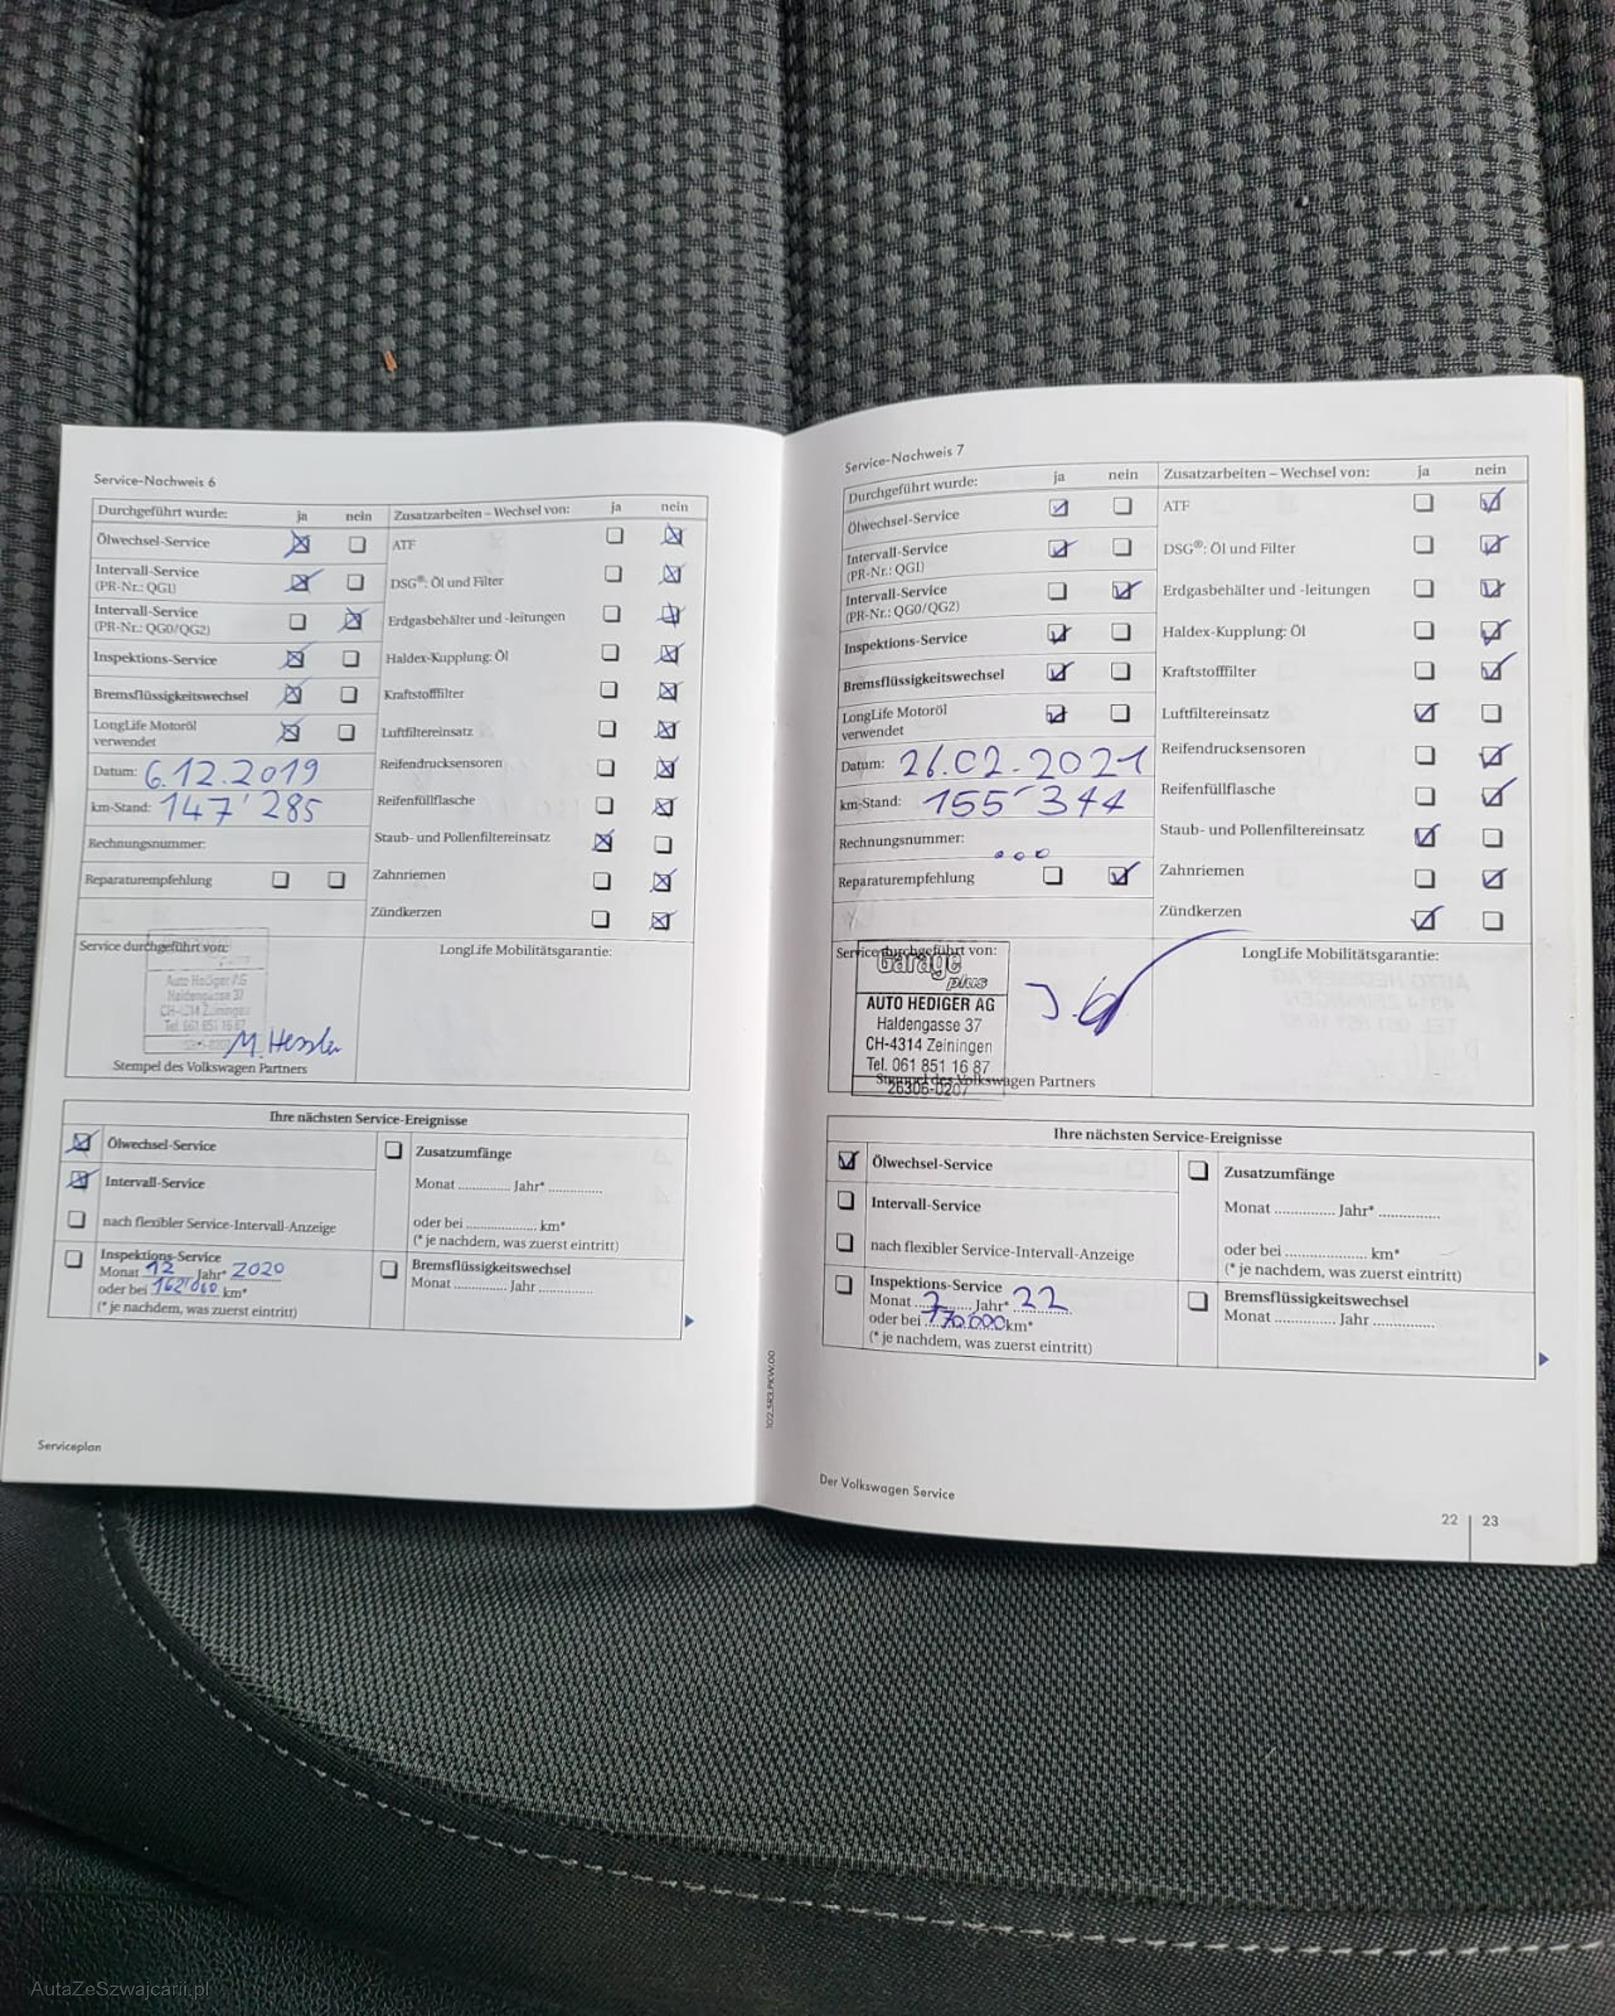 Service-Nachweis 6
Durchgeführt wurde: ja nein
Ölwechsel-Service
Intervall-Service
(PR-Nr.: QG1)
Intervall-Service
(PR-Nr.: QG0/QG2)
Inspektions-Service
Bremsflüssigkeitswechsel
LongLife Motoröl
verwendet
Datum: 6.12.2019
km-Stand: 147'285
Rechnungsnummer:
Reparaturempfehlung
Zusatzarbeiten – Wechsel von: ja nein
ATF
DSG®: Öl und Filter
Erdgasbehälter und -leitungen
Haldex-Kupplung: Öl
Kraftstofffilter
Luftfiltereinsatz
Reifendrucksensoren
Reifenfüllflasche
Staub- und Pollenfiltereinsatz
Zahnriemen
Zündkerzen
Service durchgeführt von:
Auto Hediger AG
Haldengasse 37
CH-4314 Zeiningen
Tel. 061 851 16 87
Stempel des Volkswagen Partners
LongLife Mobilitätsgarantie:
Ihre nächsten Service-Ereignisse
Ölwechsel-Service
Intervall-Service
nach flexibler Service-Intervall-Anzeige
Inspektions-Service
Monat 12 Jahr* 2020
oder bei 162'000 km*
(* je nachdem, was zuerst eintritt)
Zusatzumfänge
Monat ............. Jahr* ..............
oder bei .................... km*
(* je nachdem, was zuerst eintritt)
Bremsflüssigkeitswechsel
Monat ............. Jahr ..............
Serviceplan
102.5R3.PKW.00
Service-Nachweis 7
Durchgeführt wurde: ja nein
Ölwechsel-Service
Intervall-Service
(PR-Nr.: QG1)
Intervall-Service
(PR-Nr.: QG0/QG2)
Inspektions-Service
Bremsflüssigkeitswechsel
LongLife Motoröl
verwendet
Datum: 26.02.2021
km-Stand: 155'344
Rechnungsnummer:
Reparaturempfehlung
Zusatzarbeiten – Wechsel von: ja nein
ATF
DSG®: Öl und Filter
Erdgasbehälter und -leitungen
Haldex-Kupplung: Öl
Kraftstofffilter
Luftfiltereinsatz
Reifendrucksensoren
Reifenfüllflasche
Staub- und Pollenfiltereinsatz
Zahnriemen
Zündkerzen
Service durchgeführt von:
Garage
plus
AUTO HEDIGER AG
Haldengasse 37
CH-4314 Zeiningen
Tel. 061 851 16 87
Stempel des Volkswagen Partners
26306-0207
LongLife Mobilitätsgarantie:
Ihre nächsten Service-Ereignisse
Ölwechsel-Service
Intervall-Service
nach flexibler Service-Intervall-Anzeige
Inspektions-Service
Monat 2 Jahr* 22
oder bei 170.000 km*
(* je nachdem, was zuerst eintritt)
Zusatzumfänge
Monat .............. Jahr* ..............
oder bei .................... km*
(* je nachdem, was zuerst eintritt)
Bremsflüssigkeitswechsel
Monat .............. Jahr ..............
Der Volkswagen Service
22 | 23
AutaZeSzwajcarii.pl